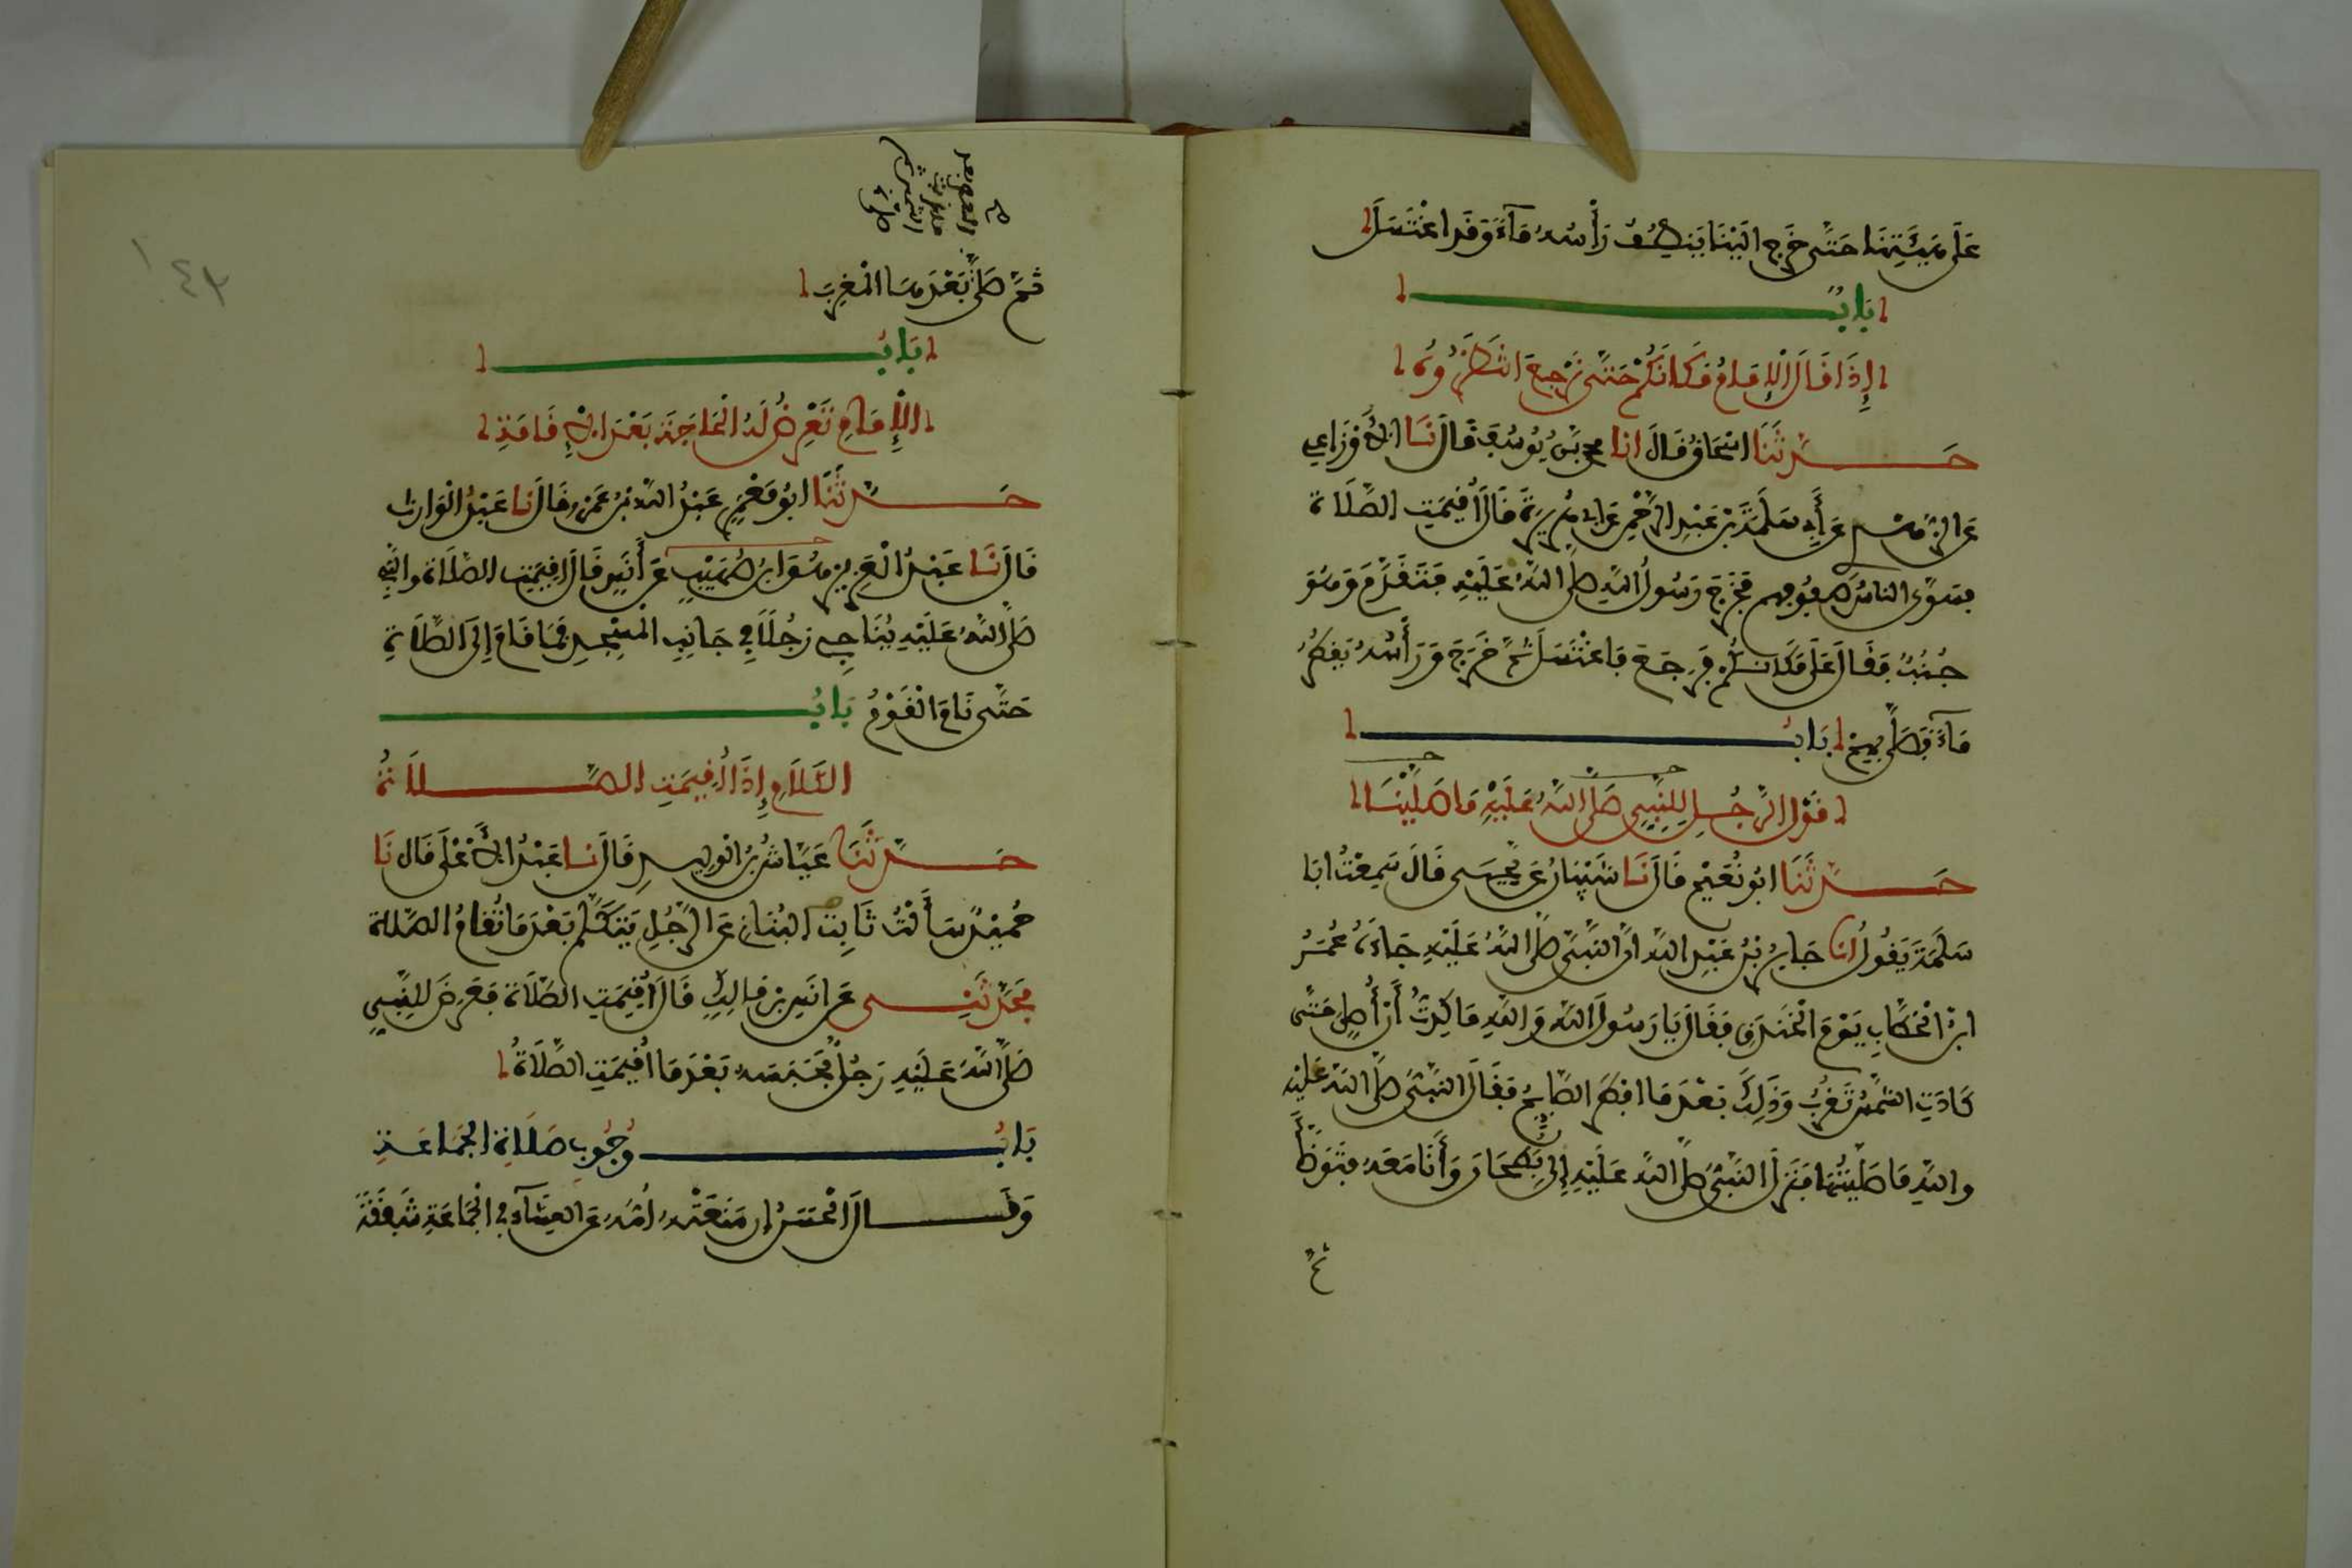 عَلَى هَيْئَتِنَا حَتَّى خَرَجَ إِلَيْنَا يَنطِفُ رَأْسُهُ مَآءً وَقَدِ اغْتَسَلَ
بَابٌ
إِذَا قَالَ الْإِمَامُ مَكَانَكُمْ حَتَّى نَرْجِعَ انتَظَرُوهُ
حَدَّثَنَا اسْحَاقُ قَالَ انا محمد بْنُ يُوسُفَ قَالَ نَا الأَوْزَاعِي
عَنِ الزُّهْرِي عَنْ أَبِي سَلَمَةَ بْنِ عَبْدِ الرَّحْمَنِ عَنْ ابِي هُرَيْرَةَ قَالَ أُقِيمَتِ الصَّلَاةُ
فَسَوَّى الناسُ صُفُوفَهم فَخَرَجَ رَسُولُ اللَّهِ صَلَّى اللَّهُ عَلَيْهِ فَتَقَدَّمَ وَهُوَ
جُنُبٌ فَقَالَ عَلَى مَكَانِكُمْ فَرَجَعَ فَاغْتَسَلَ ثُمَّ خَرَجَ وَرَأْسُهُ يَقطُرُ
مَآءً فَصَلَّى بِهِمْ بَابُ
قَوْلِ الرَّجُلِ لِلنَّبِيِّ صَلَّى اللَّهُ عَلَيْهِ مَا صَلَّيْنَا
حَدَّثَنَا ابُو نُعَيْمٍ قَالَ نَا شَيْبَانُ عَنْ يَحْيَى قَالَ سَمِعْتُ ابَا
سَلَمَةَ يَقُولُ انا جَابِرُ بْنُ عَبْدِ اللَّهِ انَّ النَّبِيَّ صَلَّى اللَّهُ عَلَيْهِ جَاءَهُ عُمَرُ
ابْنُ الْخَطَّابِ يَوْمَ الْخَنْدَقِ فَقَالَ يَا رَسُولَ اللَّهِ وَاللَّهِ مَا كِدتُّ أَنْ أُصَلِّيَ حَتَّى
كَادَتِ الشَّمْسُ تَغْرُبُ وَذَلِكَ بَعْدَ مَا افْطَرَ الصَّائِمُ فَقَالَ النَّبِيُّ صَلَّى اللَّهُ عَلَيْهِ
وَاللَّهِ مَا صَلَّيْتُهَا فَنَزَلَ النَّبِيُّ صَلَّى اللَّهُ عَلَيْهِ إِلَى بُطْحَانَ وَأَنَا مَعَهُ فَتَوَضَّأَ
ثُمَّ
ثُمَّ صَلَّى بَعْدَهَا الْمَغْرِبَ
بَابُ
الْإِمَامِ تَعْرِضُ لَهُ الْحَاجَةُ بَعْدَ الْإِقَامَةِ
حَدَّثَنَا ابُو مَعْمَرٍ عَبْدُ اللَّهِ بْنُ عَمْرٍو قَالَ نا عَبْدُ الْوَارِثِ
قَالَ نَا عَبْدُ الْعَزِيزِ هُوَ ابْنُ صُهَيْبٍ عَنْ أَنَسٍ قَالَ اقِيمَتِ الصَّلَاةُ وَالنَّبِيُّ
صَلَّى اللَّهُ عَلَيْهِ يُنَاجِي رَجُلًا فِي جَانِبِ الْمَسْجِدِ فَمَا قَامَ إِلَى الصَّلَاةِ
حَتَّى نَامَ الْقَوْمُ بَابُ
الكَلَامِ إِذَا أُقِيمَتِ الصَّلَاةُ
حَدَّثَنَا عَيَّاشُ بْنُ الْوَلِيدِ قَالَ نا عَبْدُ الأَعْلَى قَالَ نَا
حُمَيْدٌ سَأَلْتُ ثَابِت الْبُنَانِي عَنِ الرَّجُلِ يَتَكَلَّمُ بَعْدَ مَا تُقَامُ الصَّلَاة
فَحَدَّثَنِي عَنْ انَسِ بْنِ مَالِكٍ قَالَ أُقِيمَتِ الصَّلَاةُ فَعَرَضَ لِلنَّبِيِّ
صَلَّى اللَّهُ عَلَيْهِ رَجُلٌ فَحَبَسَهُ بَعْدَ مَا اُقِيمَتِ الصَّلَاةُ
بَابُ وُجُوبِ صَلَاةِ الْجَمَاعَةِ
وَقَالَ الْحَسَنُ إِن مَنَعَتْهُ أُمُّهُ عَنِ العِشَآءِ فِي الْجَمَاعَةِ شَفَقَةً